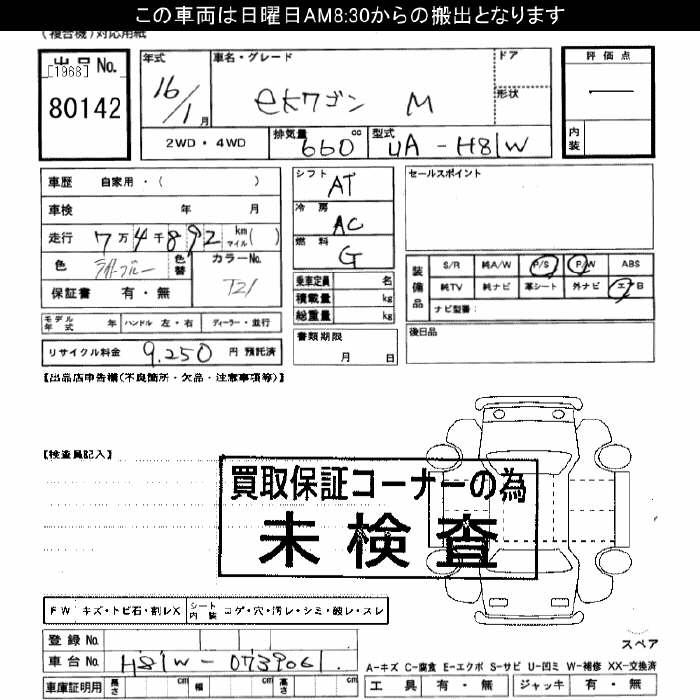 この車両は日曜日AM8:30からの搬出となります
(複合機)対応用紙
出品 No.
[1968]
80142
年式
16/1月
車名・グレード
ekワゴン M
ドア
形状
評価点
内装
2WD・4WD
排気量 660 cc
型式 UA-H81W
車歴 自家用・( )
車検 年 月
走行 7万4千892 km マイル( )
色 ライトブルー
色替
カラーNo. T21
保証書 有・無
シフト AT
冷房 AC
燃料 G
乗車定員 名
積載量 kg
総重量 kg
セールスポイント
装備品
S/R 純A/W P/S P/W ABS
純TV 純ナビ 革シート 外ナビ エアB
ナビ型番:
モデル年式 年 ハンドル 左・右 ディーラー・並行
書類期限 月 日
後日品
リサイクル料金 9,250 円 預託済
【出品店申告欄(不良箇所・欠品・注意事項等)】
【検査員記入】
買取保証コーナーの為
未検査
FW キズ・トビ石・割レX シート内装 コゲ・穴・汚レ・シミ・破レ・スレ
登録 No.
スペア
車台 No. H81W-0739061
A-キズ C-腐食 E-エクボ S-サビ U-凹ミ W-補修 XX-交換済
車庫証明用 長さ cm 幅 cm 高さ cm
工具 有・無 ジャッキ 有・無